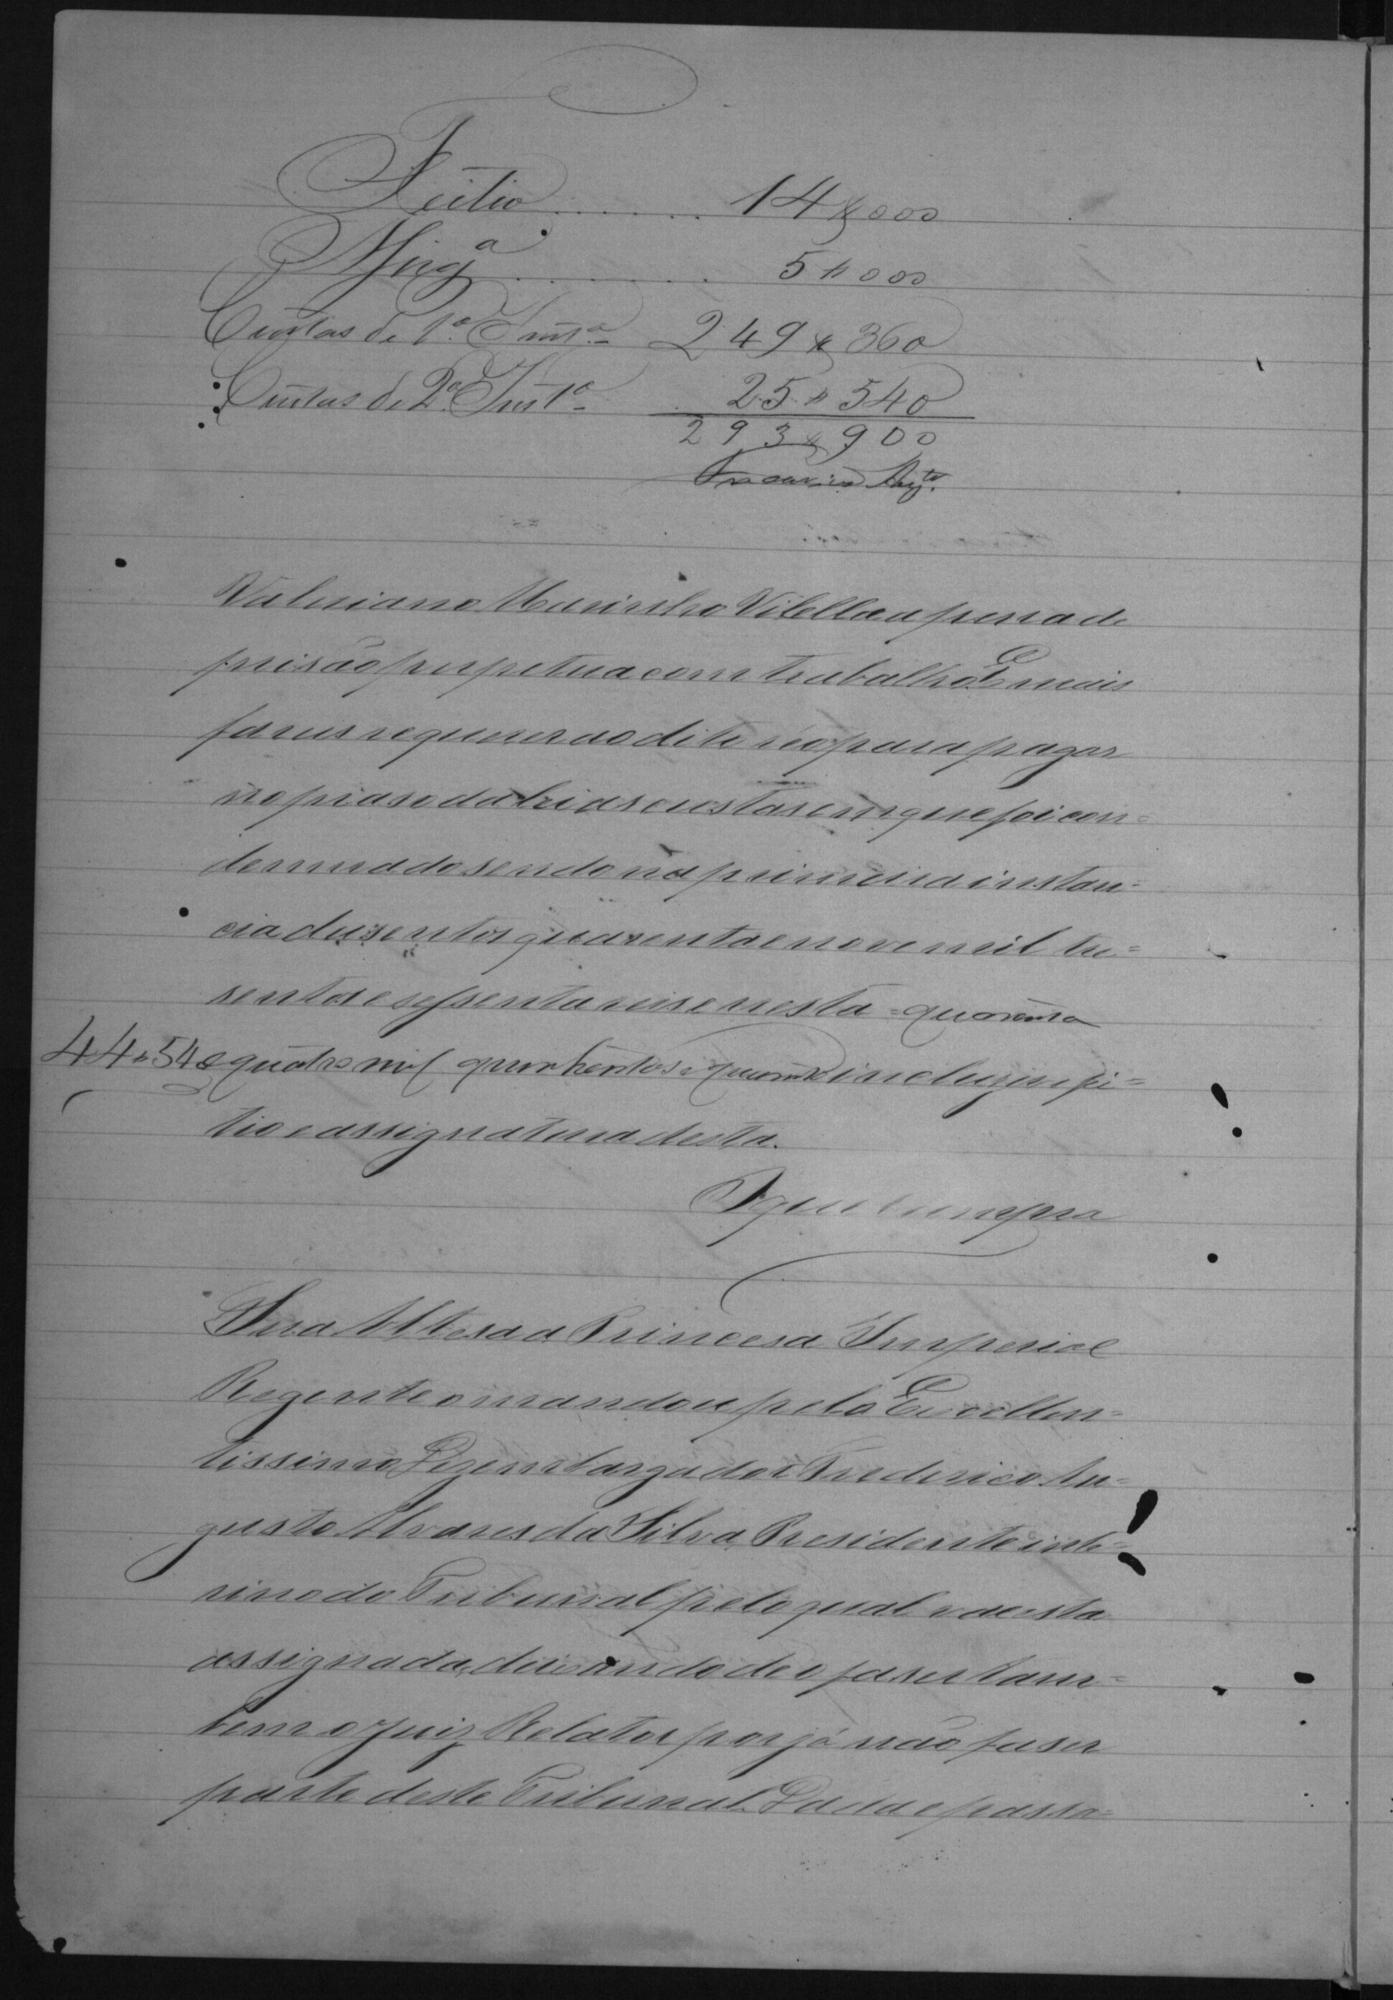 Feitio ........ 14$000
Assig.ª ........ 5$000
Custas de 1ª Inst.ª 249$360
Custas de 2ª Inst.ª 25$540
293$900
Valeriano Marinho Vilella a pena de
prisão perpetua com trabalho. E mais
fareis requerer ao dito réo para pagar
no praso da lei as custas em que foi con=
demnado sendo na primeira instan=
cia dusentos quarenta e nove mil tre=
sentos e sessenta reis e nesta = quarenta
44$540 e quatro mil quinhentos e quarenta inclusive fei=
tio e assignatura desta.
O que cumpra
Sua Altesa a Princesa Imperial
Regente o mandou pelo Excellen=
tissimo Desembargador Frederico Au=
gusto Alvares da Silva Presidente inte=
rino do Tribunal pelo qual vae esta
assignada, deixando de o faser tam=
bem o Juiz Relator por já não faser
parte deste Tribunal. Dada e passa=